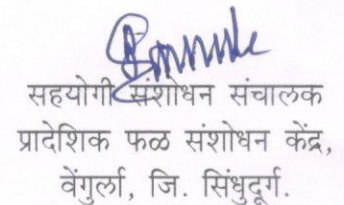 सहयोगी संशोधन संचालक
प्रादेशिक फळ संशोधन केंद्र,
वेंगुर्ला, जि. सिंधुदुर्ग.